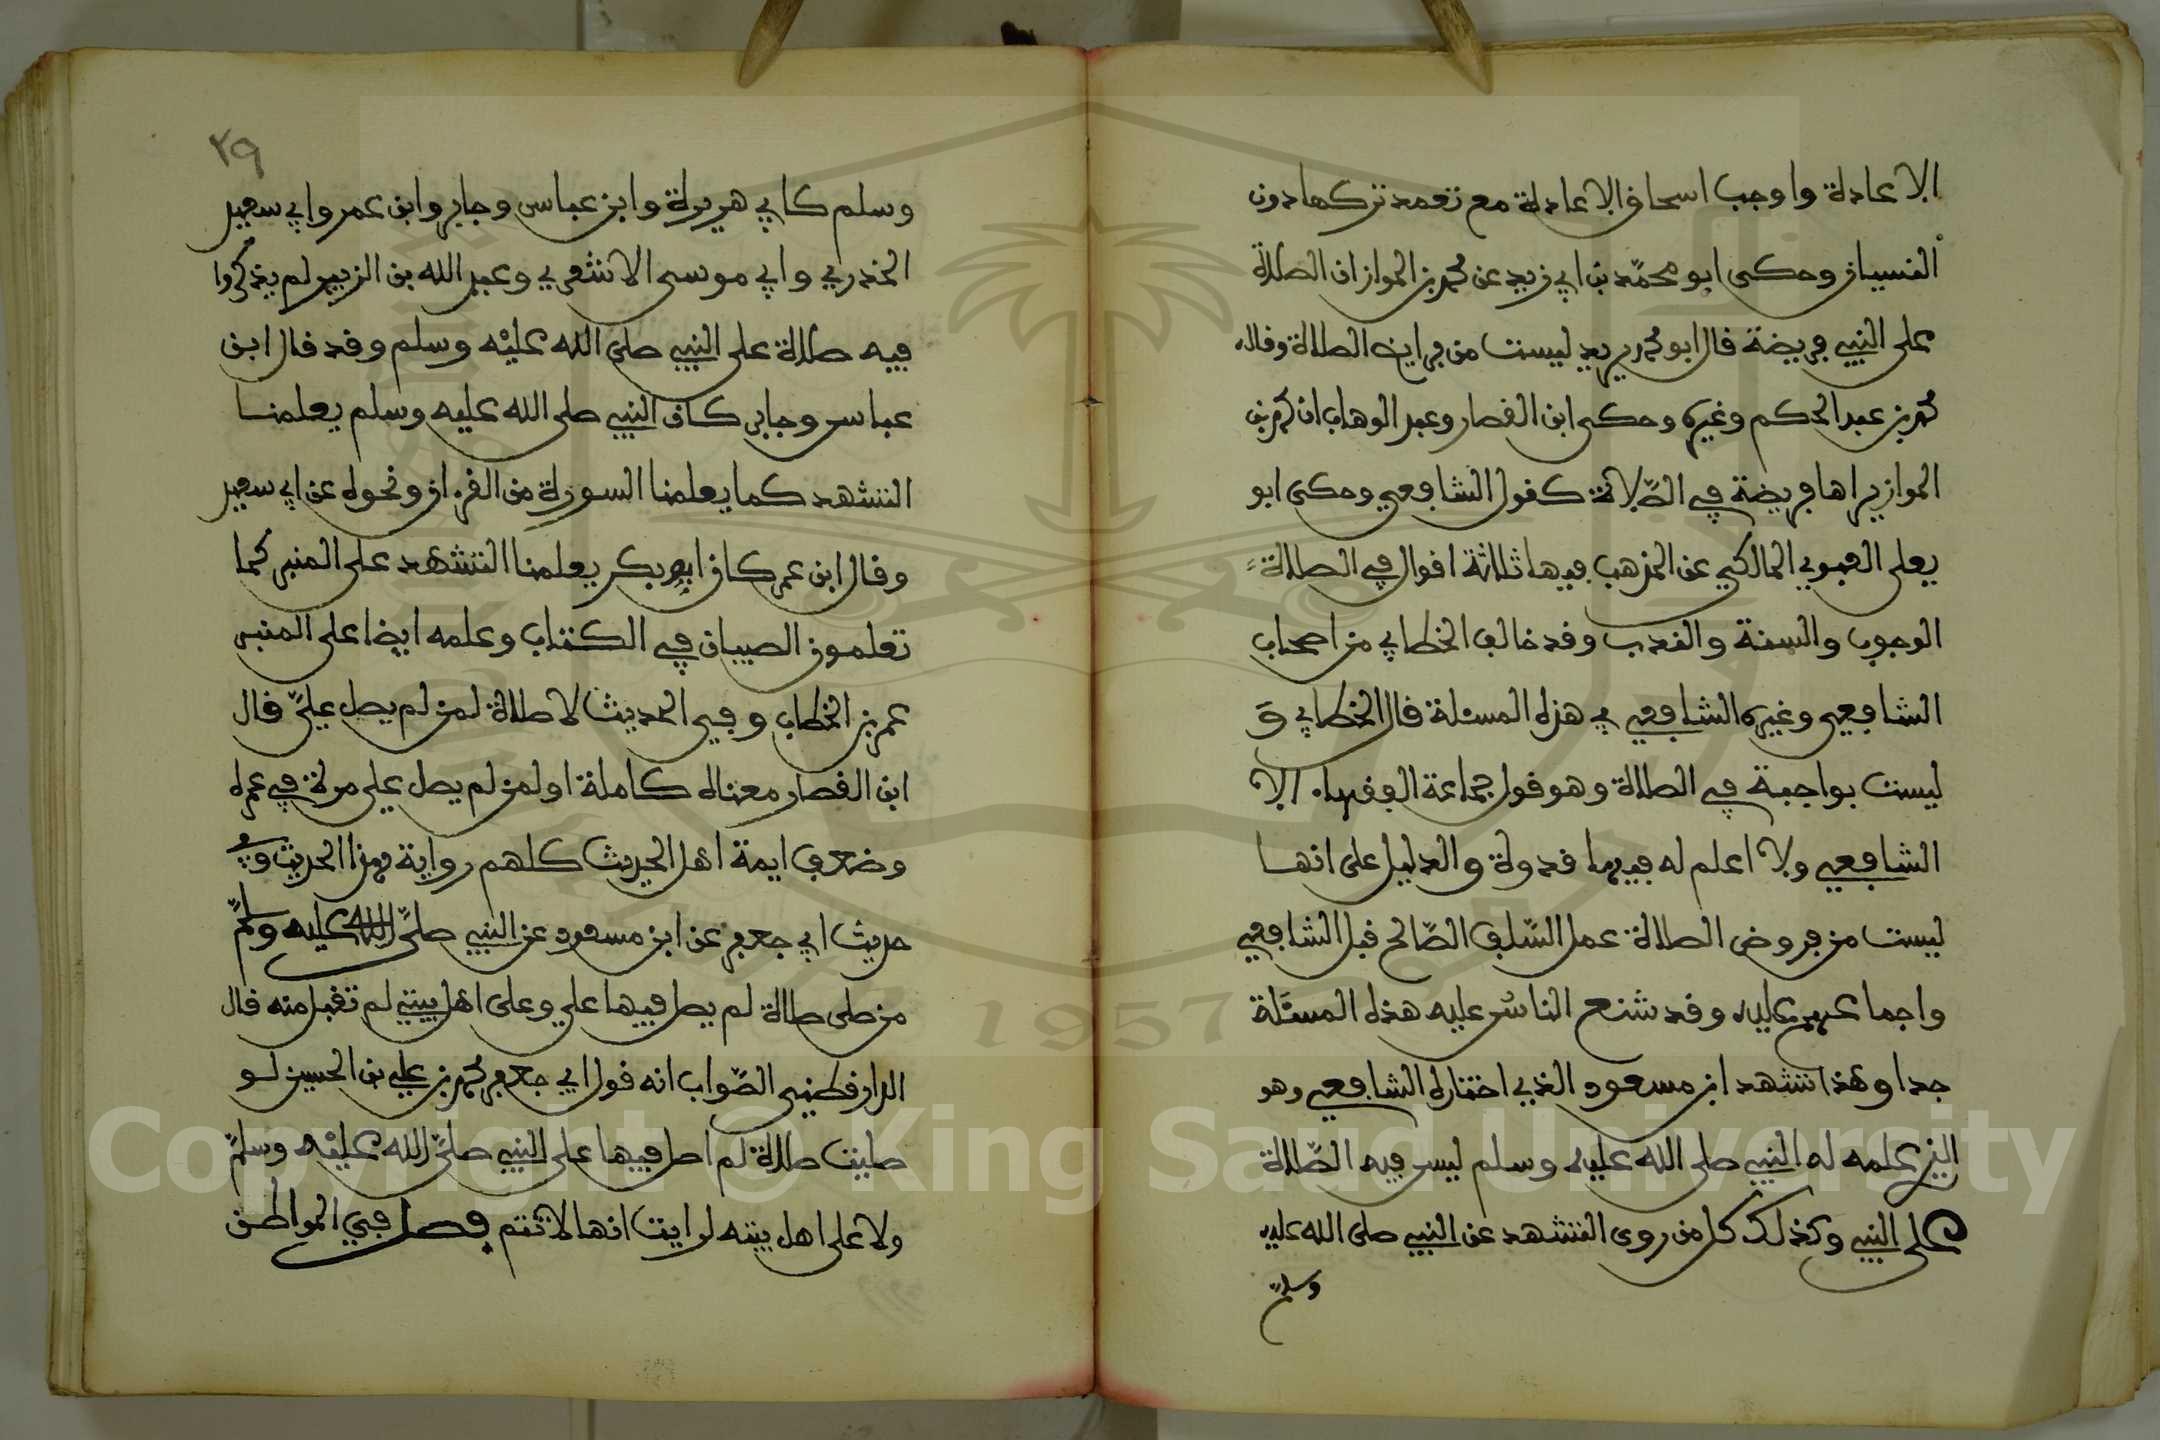 الاعادة واوجب اسحاق الاعادة مع تعمد تركها دون
النسيان وحكى ابو محمد بن ابي زيد عن محمد بن المواز ان الصلاة
على النبي فريضة قال ابو محمد يريد ليست من فرايض الصلاة وقاله
محمد بن عبد الحكم وغيره وحكى ابن القصار وعبد الوهاب ان محمد بن
المواز يراها فريضة في الصّلاة كقول الشافعي وحكى ابو
يعلى العبدي المالكي عن المذهب فيها ثلاثة اقوال في الصلاة
الوجوب والسنة والندب وقد خالف الخطابي من اصحاب
الشافعي وغيره الشافعي في هذه المسئلة قال الخطابي و
ليست بواجبة في الصلاة وهو قول جماعة الفقهاء الا
الشافعي ولا اعلم له فيها قدوة والدليل على انها
ليست من فروض الصلاة عمل السّلف الصّالح قبل الشافعي
واجماعهم عليه وقد شنع الناس عليه هذه المسئلة
جدا وهذا تشهد ابن مسعود الذي اختاره الشافعي وهو
الذي علمه له النبي صلى الله عليه وسلم ليس فيه الصّلاة
على النبي وكذلك كل من روى التشهد عن النبي صلى الله عليه
وسلم
٢٩
وسلم كابي هريرة وابن عباس وجابر وابن عمر وابي سعيد
الخدري وابي موسى الاشعري وعبد الله بن الزبير لم يذكروا
فيه صلاة على النبي صلى الله عليه وسلم وقد قال ابن
عباس وجابر كان النبي صلى الله عليه وسلم يعلمنا
التشهد كما يعلمنا السورة من القرءان ونحوه عن ابي سعيد
وقال ابن عمر كان ابو بكر يعلمنا التشهد على المنبر كما
تعلمون الصبيان في الكتاب وعلمه ايضا على المنبر
عمر بن الخطاب وفي الحديث لا صلاة لمن لم يصل عليّ قال
ابن القصار معناه كاملة او لمن لم يصل علي مرة في عمره
وضعف ايمة اهل الحديث كلهم رواية هذا الحديث وفي
حديث ابي جعفر عن ابن مسعود عن النبي صلّى الله عليه وسلّم
من صلى صلاة لم يصل فيها علي وعلى اهل بيتي لم تقبل منه قال
الدارقطني الصّواب انه قول ابي جعفر محمد بن علي بن الحسين لو
صليت صلاة لم اصل فيها على النبي صلّى الله عليْه وسلّم
ولا على اهل بيته لرايت انها لا تتم فصل في المواطن
1957
Copyright © King Saud University